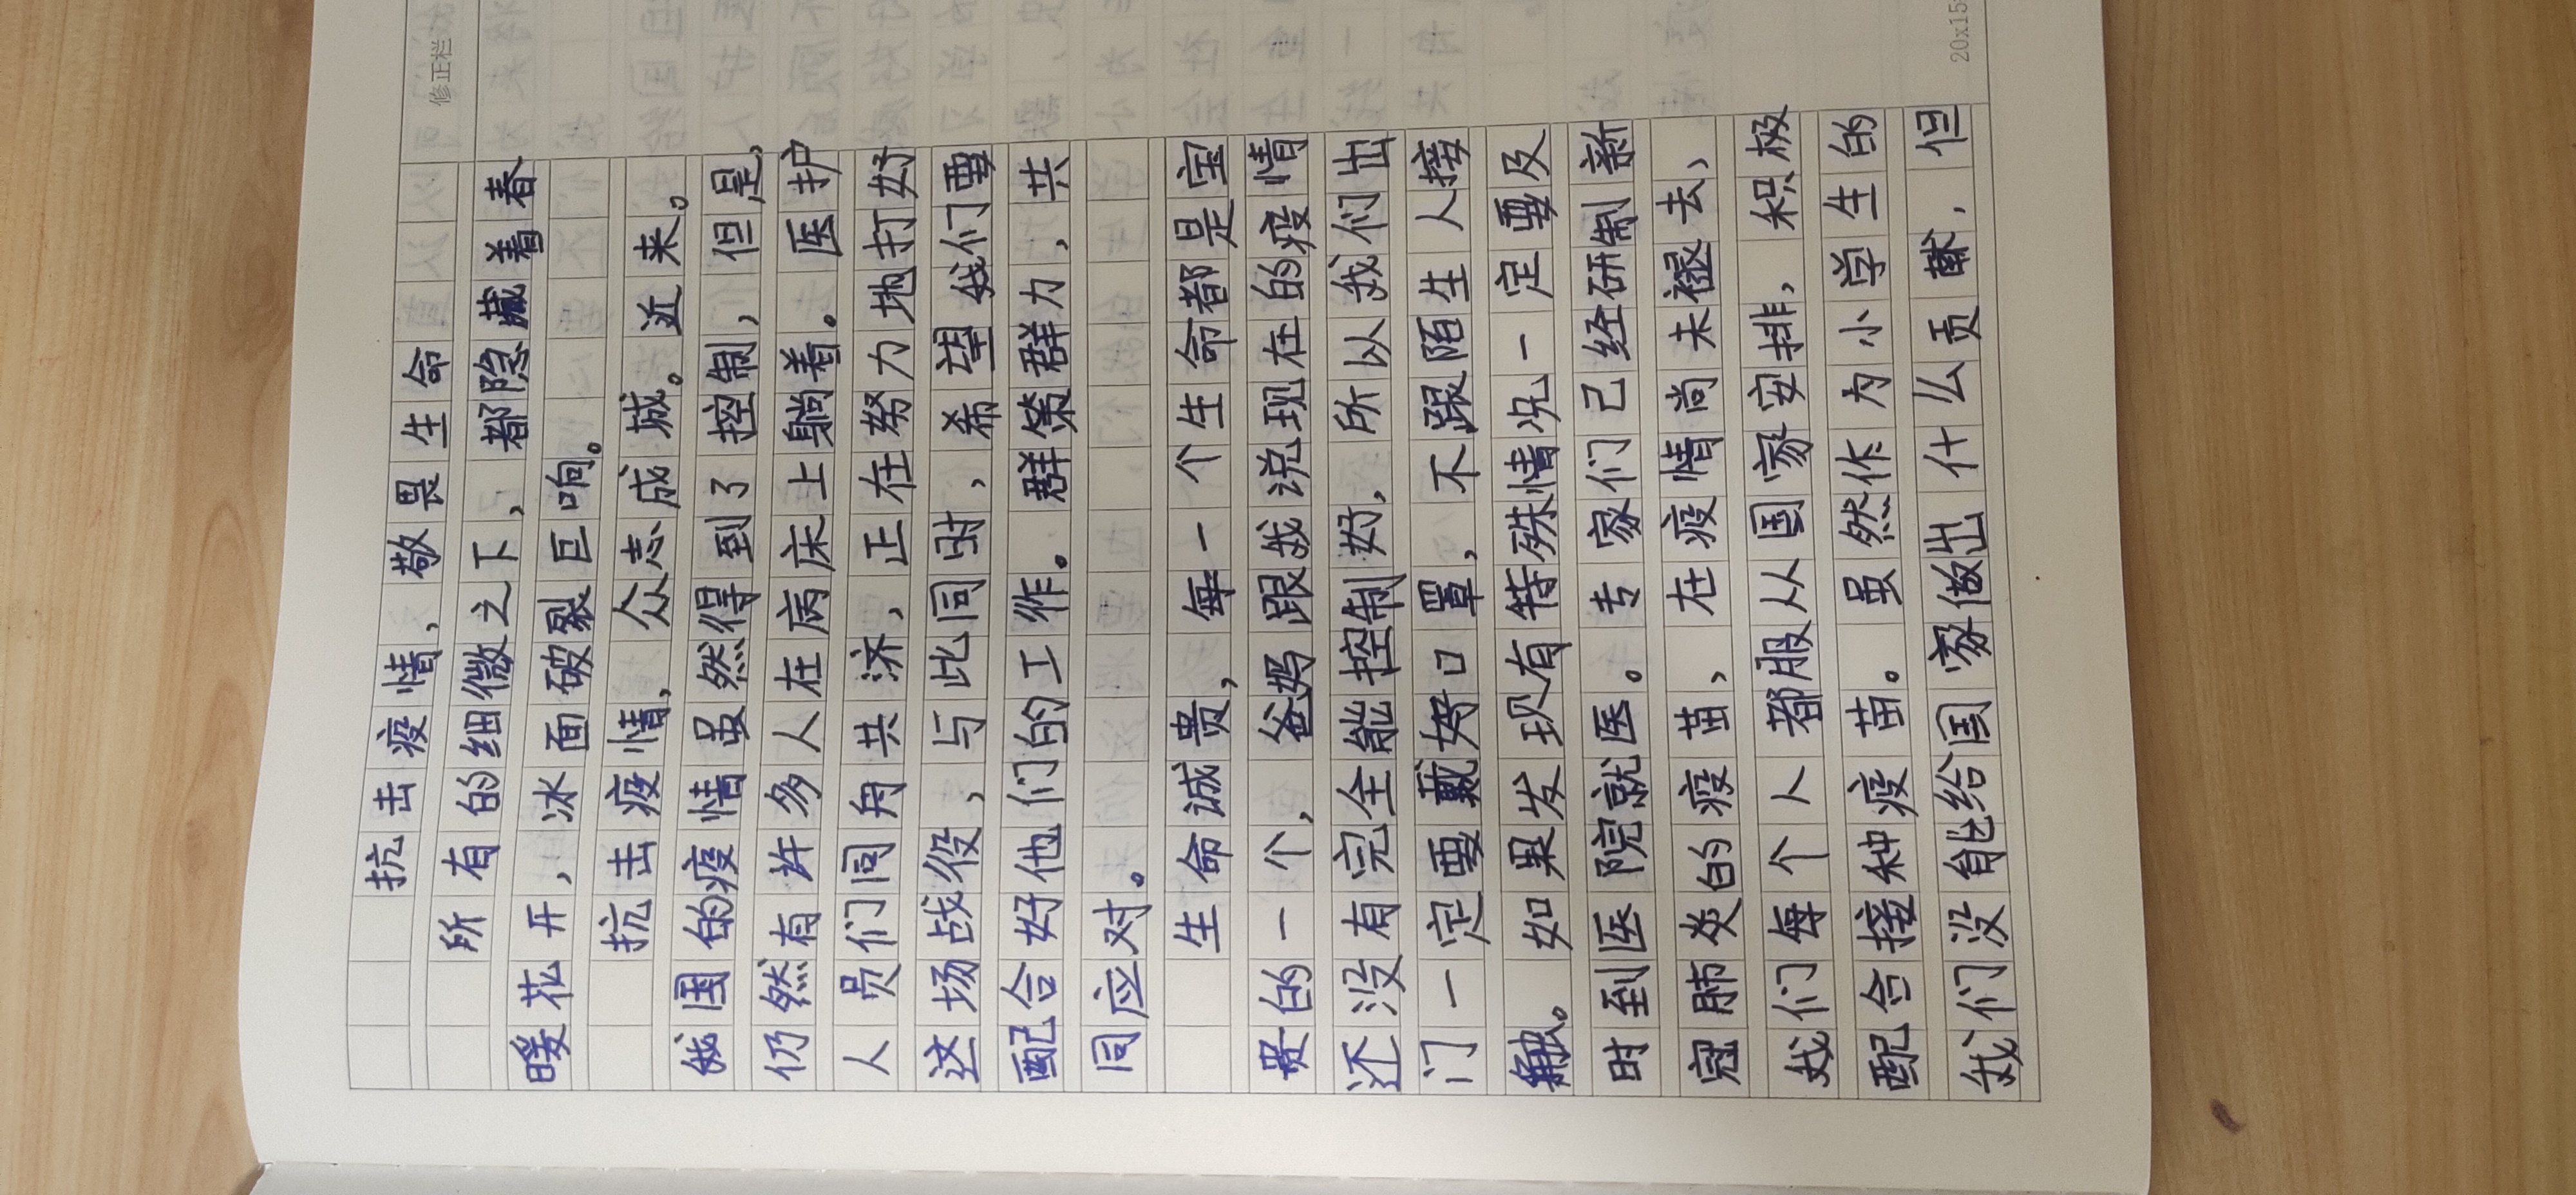 修正栏
抗击疫情，敬畏生命
所有的细微之下，都隐藏着春
暖花开，冰面破裂巨响。
抗击疫情，众志成城。近来。
我国的疫情虽然得到了控制，但是，
仍然有许多人在病床上躺着。医护
人员们同舟共济，正在努力地打好
这场战役，与此同时，希望我们要
配合好他们的工作。群策群力，共
同应对。
生命诚贵，每一个生命都是宝
贵的一个，爸妈跟我说现在的疫情
还没有完全能控制好，所以我们出
门一定要戴好口罩，不跟陌生人接
触。如果发现有特殊情况一定要及
时到医院就医。专家们己经研制新
冠肺炎的疫苗，在疫情尚未褪去、
我们每个人都服从国家安排，积极
配合接种疫苗。虽然作为小学生的
我们没能给国家做出什么贡献，但
20x15